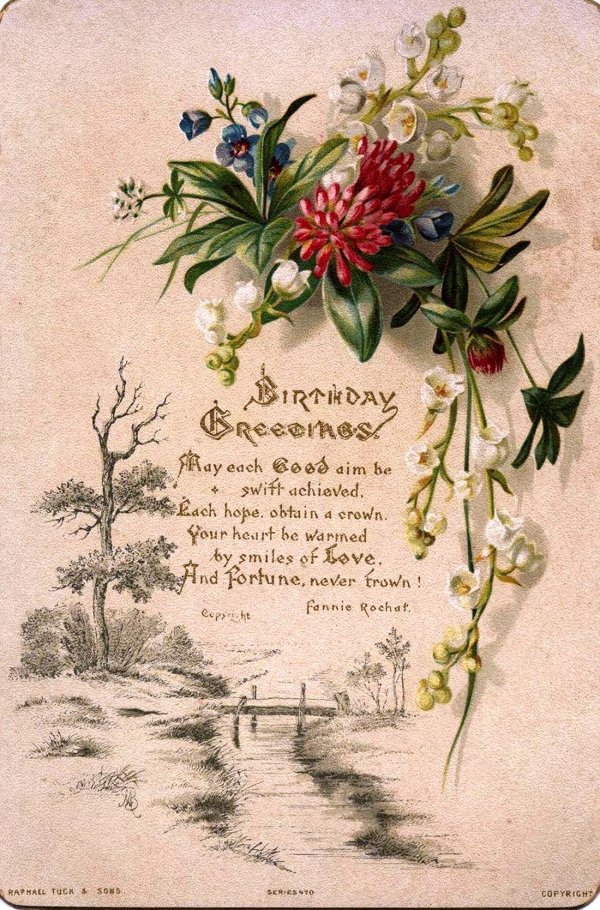 BIRTHDAY
GREETINGS.
May each Good aim be
swift achieved,
Each hope, obtain a crown.
Your heart be warmed
by smiles of Love,
And Fortune, never frown!
Copyright
Fannie Rochat.
RAPHAEL TUCK & SONS
SERIES 470
COPYRIGHT